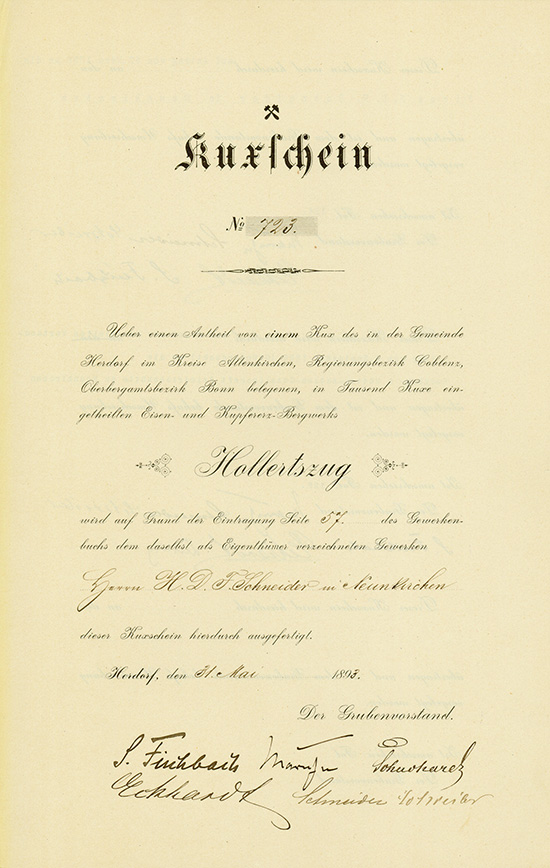 Kuxschein
No 723.
Ueber einen Antheil von einem Kux des in der Gemeinde
Herdorf im Kreise Altenkirchen, Regierungsbezirk Coblenz,
Oberbergamtsbezirk Bonn belegenen, in Tausend Kuxe ein-
getheilten Eisen- und Kupfererz-Bergwerks
Hollertszug
wird auf Grund der Eintragung Seite 57. des Gewerken-
buchs dem daselbst als Eigenthümer verzeichneten Gewerken
Herrn H. D. F. Schneider in Neunkirchen
dieser Kuxschein hierdurch ausgefertigt.
Herdorf, den 31. Mai 1893.
Der Grubenvorstand.
S. Fischbach Schuchard
Eckhardt Schneider